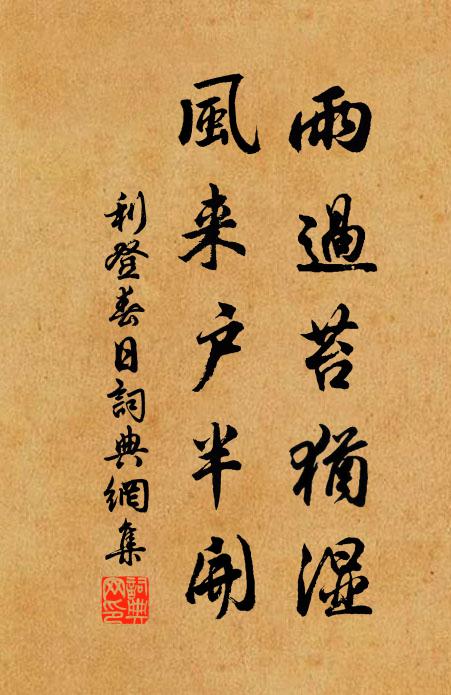 雨過苔猶濕
風来户半開
利登春日詞典網集
詞典
网印